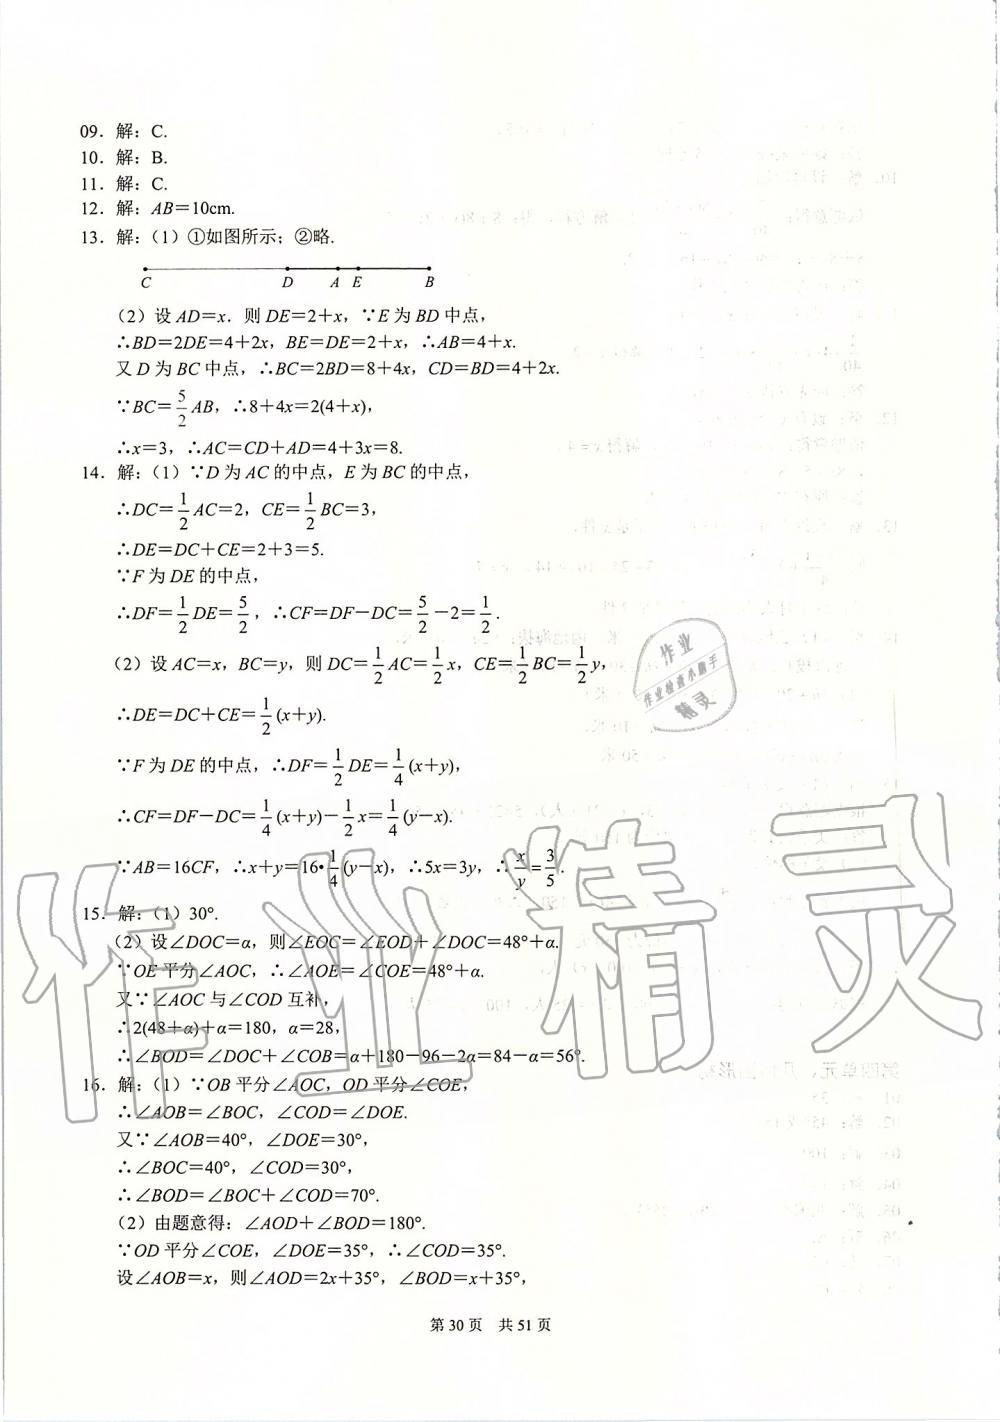 09．解：C.
10．解：B.
11．解：C.
12．解：AB＝10cm.
13．解：（1）①如图所示；②略.
C D A E B
（2）设 AD＝x．则 DE＝2＋x，∵E 为 BD 中点，
∴BD＝2DE＝4＋2x，BE＝DE＝2＋x，∴AB＝4＋x.
又 D 为 BC 中点，∴BC＝2BD＝8＋4x，CD＝BD＝4＋2x.
∵BC＝5/2 AB，∴8＋4x＝2(4＋x)，
∴x＝3，∴AC＝CD＋AD＝4＋3x＝8.
14．解：（1）∵D 为 AC 的中点，E 为 BC 的中点，
∴DC＝1/2 AC＝2，CE＝1/2 BC＝3，
∴DE＝DC＋CE＝2＋3＝5.
∵F 为 DE 的中点，
∴DF＝1/2 DE＝5/2，∴CF＝DF－DC＝5/2－2＝1/2.
（2）设 AC＝x，BC＝y，则 DC＝1/2 AC＝1/2 x，CE＝1/2 BC＝1/2 y，
∴DE＝DC＋CE＝1/2 (x＋y).
∵F 为 DE 的中点，∴DF＝1/2 DE＝1/4 (x＋y)，
∴CF＝DF－DC＝1/4 (x＋y)－1/2 x＝1/4 (y－x).
∵AB＝16CF，∴x＋y＝16•1/4 (y－x)，∴5x＝3y，∴x/y＝3/5.
15．解：（1）30°.
（2）设∠DOC＝α，则∠EOC＝∠EOD＋∠DOC＝48°＋α.
∵OE 平分∠AOC，∴∠AOE＝∠COE＝48°＋α.
又∵∠AOC 与∠COD 互补，
∴2(48＋α)＋α＝180，α＝28，
∴∠BOD＝∠DOC＋∠COB＝α＋180－96－2α＝84－α＝56°.
16．解：（1）∵OB 平分∠AOC，OD 平分∠COE，
∴∠AOB＝∠BOC，∠COD＝∠DOE.
又∵∠AOB＝40°，∠DOE＝30°，
∴∠BOC＝40°，∠COD＝30°，
∴∠BOD＝∠BOC＋∠COD＝70°.
（2）由题意得：∠AOD＋∠BOD＝180°.
∵OD 平分∠COE，∠DOE＝35°，∴∠COD＝35°.
设∠AOB＝x，则∠AOD＝2x＋35°，∠BOD＝x＋35°，
第 30 页 共 51 页
作业
作业检查小助手
精灵
作业精灵